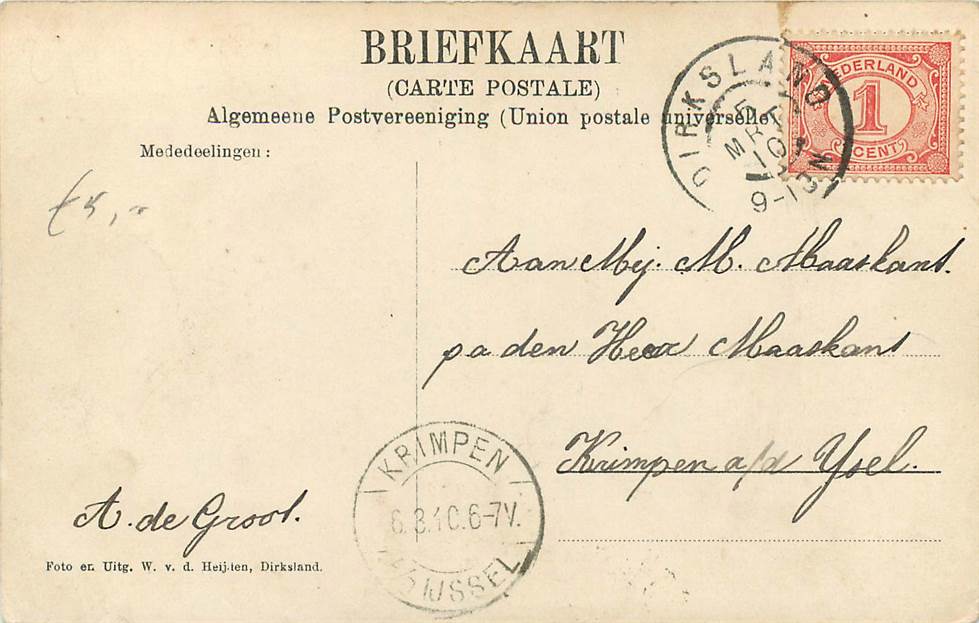 BRIEFKAART
(CARTE POSTALE)
Algemeene Postvereeniging (Union postale universelle)
Mededeelingen:
DIRKSLAND
5 MRT
10
9-10 N
NEDERLAND
1
CENT
Aan Mej. M. Maaskant.
p a den Heer Maaskant
Krimpen a/d Ysel.
KRIMPEN
6.3.10.6-7V.
IJSSEL
A. de Groot.
Foto en Uitg. W. v. d. Heijden, Dirksland.